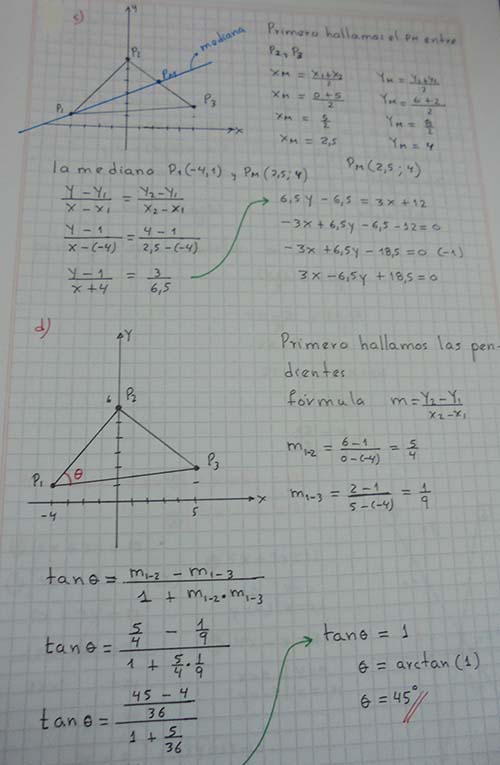 c)
Y
P2
mediana
PM
P1
P3
X
Primero hallamos el PM entre
P2 y P3
XM = (X1+X2)/2
YM = (Y1+Y2)/2
XM = (0+5)/2
YM = (6+2)/2
XM = 5/2
YM = 8/2
XM = 2,5
YM = 4
PM (2,5 ; 4)
la mediana P1(-4,1) y PM (2,5 ; 4)
(Y-Y1)/(X-X1) = (Y2-Y1)/(X2-X1)
(Y-1)/(X-(-4)) = (4-1)/(2,5-(-4))
(Y-1)/(X+4) = 3/6,5
6,5Y - 6,5 = 3X + 12
-3X + 6,5Y - 6,5 - 12 = 0
-3X + 6,5Y - 18,5 = 0 (-1)
3X - 6,5Y + 18,5 = 0
d)
Y
6
P2
P1
θ
P3
X
-4
5
Primero hallamos las pen-
dientes
fórmula m = (Y2-Y1)/(X2-X1)
m1-2 = (6-1)/(0-(-4)) = 5/4
m1-3 = (2-1)/(5-(-4)) = 1/9
tan θ = (m1-2 - m1-3)/(1 + m1-2 · m1-3)
tan θ = (5/4 - 1/9)/(1 + 5/4 · 1/9)
tan θ = ((45-4)/36)/(1 + 5/36)
tan θ = 1
θ = arctan (1)
θ = 45°